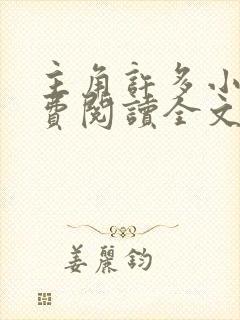 主角許多小
費閱讀全文
姜麗鈞